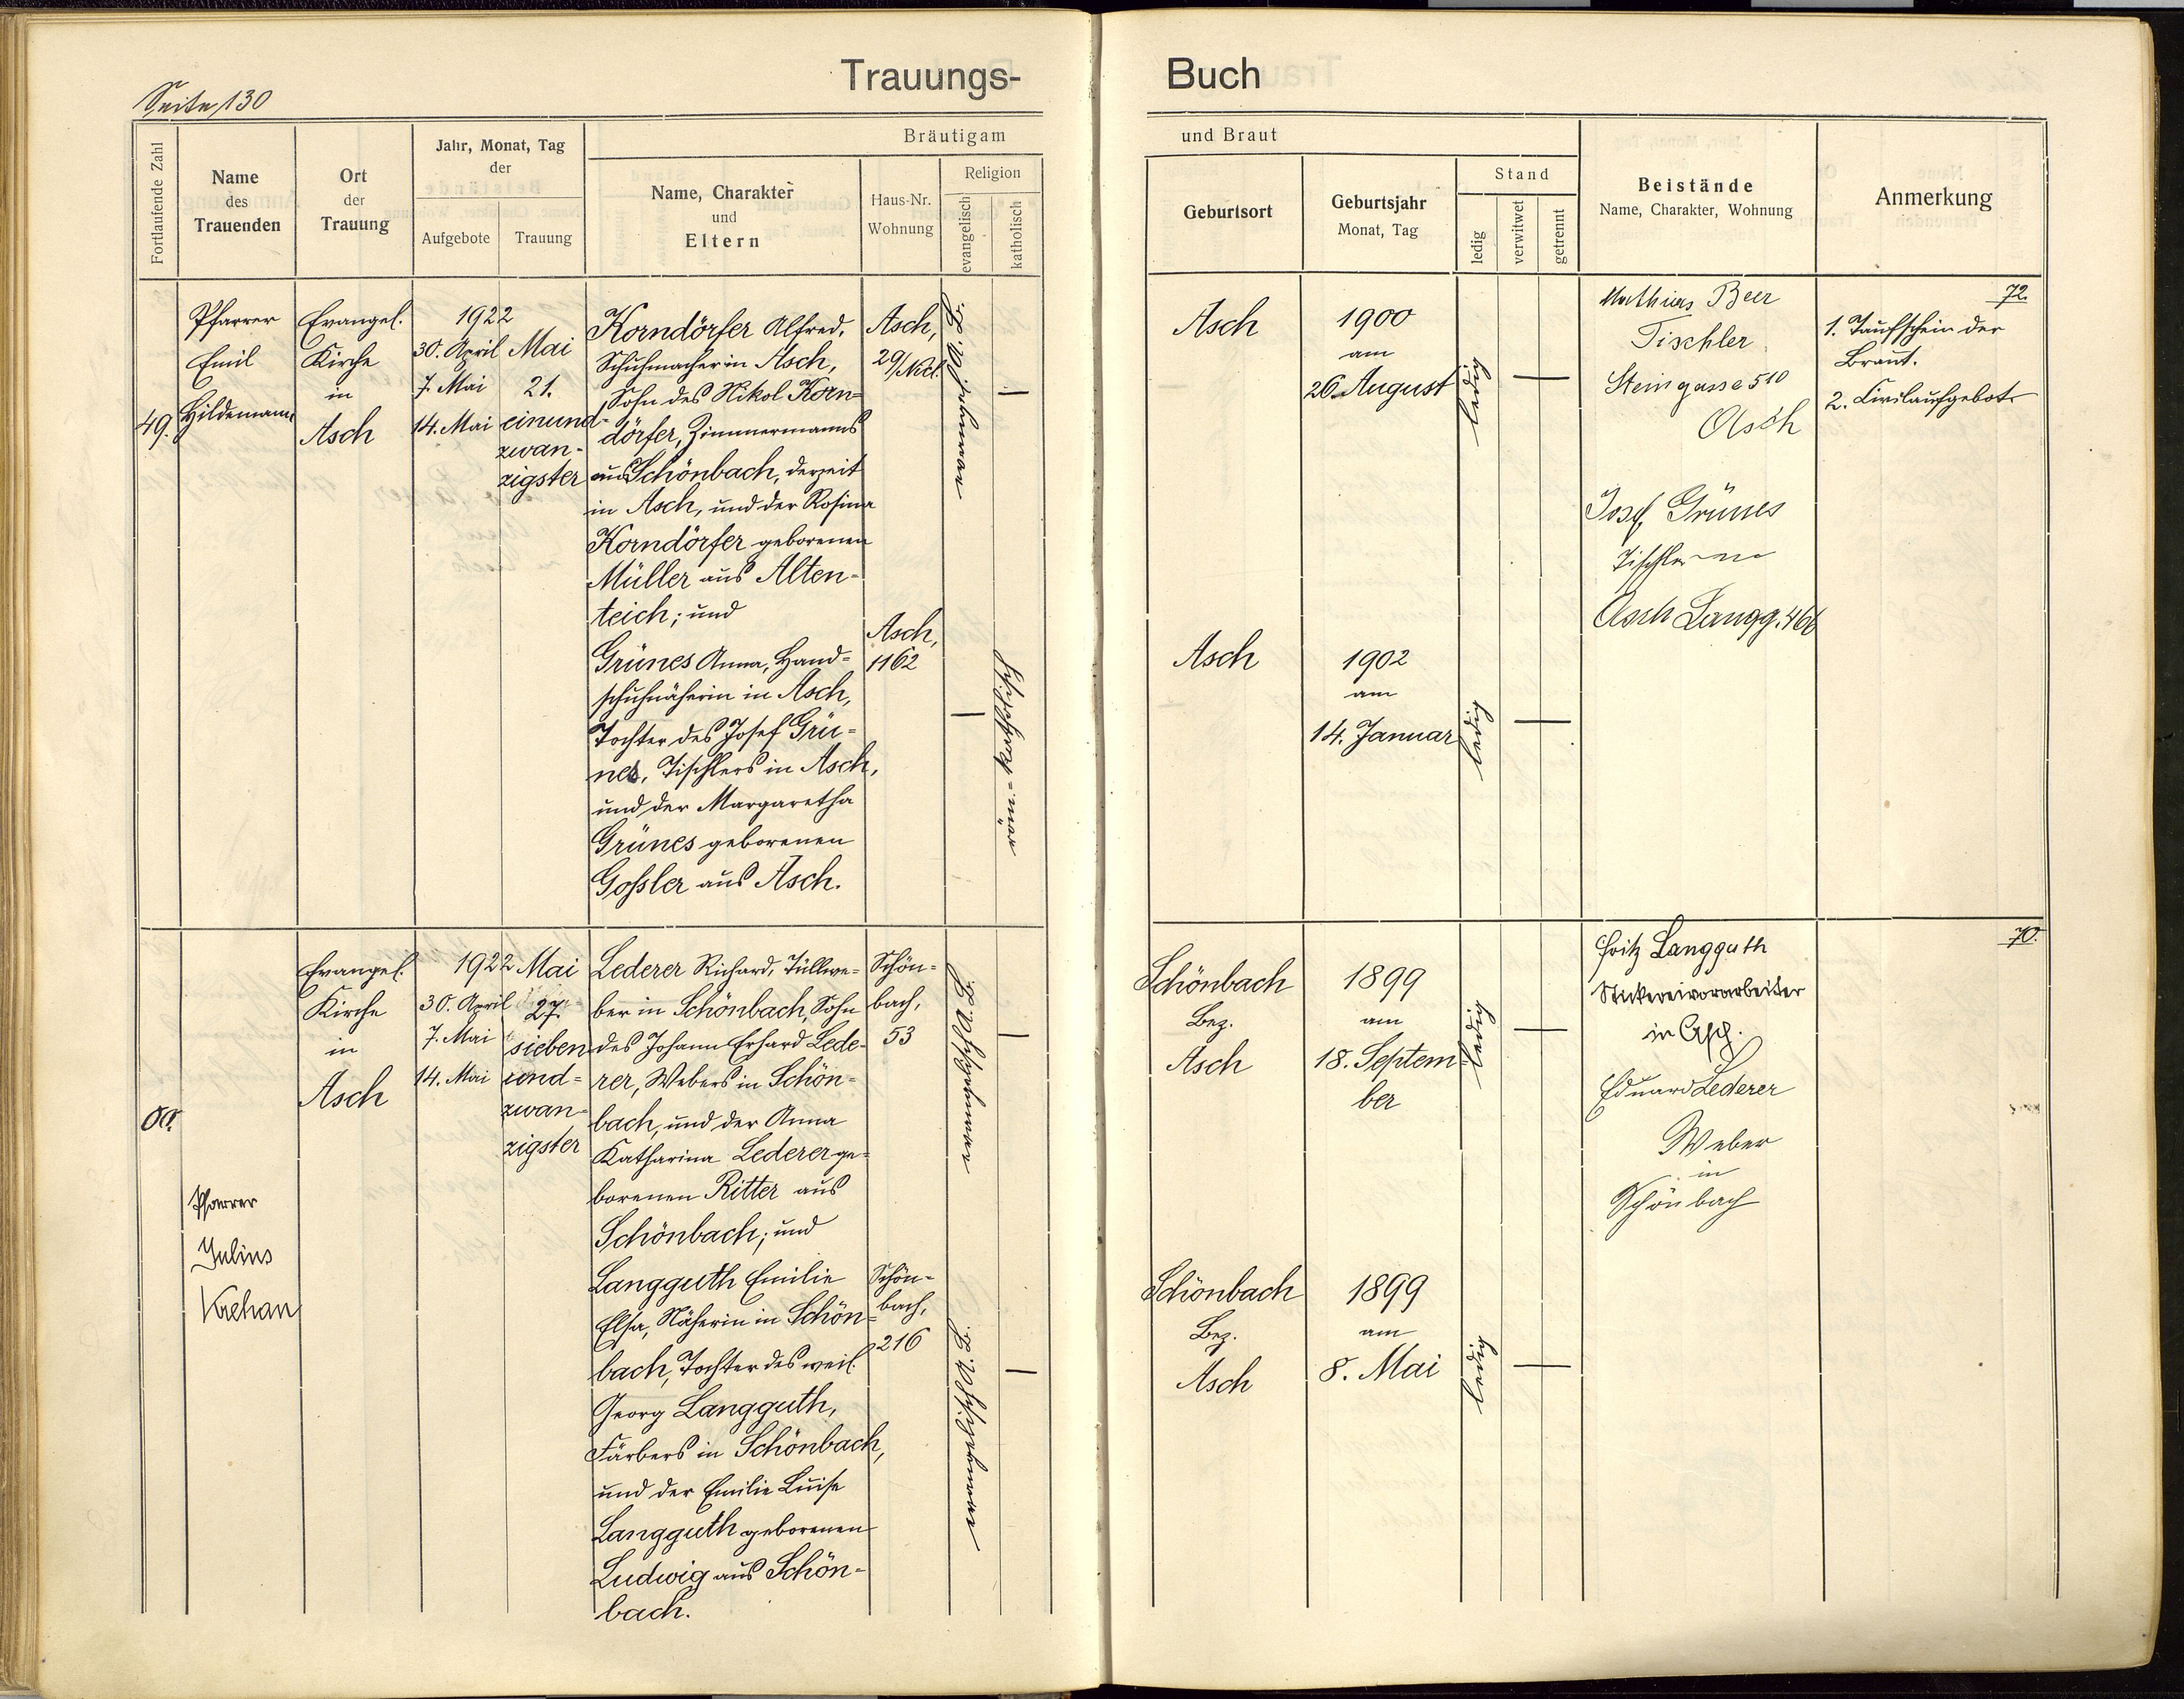 Seite 130
Trauungs-
Buch
Fortlaufende Zahl
Name
des
Trauenden
Ort
der
Trauung
Jahr, Monat, Tag
der
Aufgebote
Trauung
Bräutigam
Name, Charakter
und
Eltern
Haus-Nr.
Wohnung
Religion
evangelisch
katholisch
und Braut
Geburtsort
Geburtsjahr
Monat, Tag
Stand
ledig
verwitwet
getrennt
Beistände
Name, Charakter, Wohnung
Anmerkung
49.
Pfarrer
Emil
Hildemann
Evangel.
Kirche
in
Asch
1922
30. April
7. Mai
14. Mai
Mai
21.
einund-
zwan-
zigster
Korndörfer Alfred,
Schuhmacher in Asch,
Sohn des Nikol Korn=
dörfer, Zimmermanns
aus Schönbach, derzeit
in Asch, und der Rosina
Korndörfer geborenen
Müller aus Alten-
teich; und
Grünes Anna, Hand=
schuhnäherin in Asch,
Tochter des Josef Grü=
nes, Tischlers in Asch,
und der Margaretha
Grünes geborenen
Gossler aus Asch.
Asch,
29/Nicl.
Asch,
1162
—
—
röm.=katholisch
Asch
1900
am
26. August
ledig
—
Asch
1902
am
14. Januar
ledig
—
Mathias Beer
Tischler
Steingasse 510
Asch
Josef Grünes
Asch Langg. 466
72.
1. Taufschein der
Braut.
2. Civilaufgebot.
Pfarrer
Julius
Evangel.
Kirche
in
Asch
1922
30. April
7. Mai
14. Mai
Mai
27.
sieben
und=
zwan-
zigster
Lederer Richard, Tüllwe=
ber in Schönbach, Sohn
des Johann Erhard Lede-
rer, Webers in Schön=
bach, und der Anna
Katharina Lederer ge=
borenen Ritter aus
Schönbach; und
Langguth Emilie
Elsa, Näherin in Schön=
bach, Tochter des weil.
Georg Langguth,
Färbers in Schönbach,
und der Emilie Luise
Langguth geborenen
Ludwig aus Schön=
bach.
Schön=
bach,
53
Schön=
bach,
216
—
—
Schönbach
Bez.
Asch
1899
am
18. Septem=
ber
ledig
—
Schönbach
Bez.
Asch
1899
am
8. Mai
ledig
—
Fritz Langguth
Stickereivorarbeiter
in Asch.
Eduard Lederer
Weber
in
Schönbach
70.